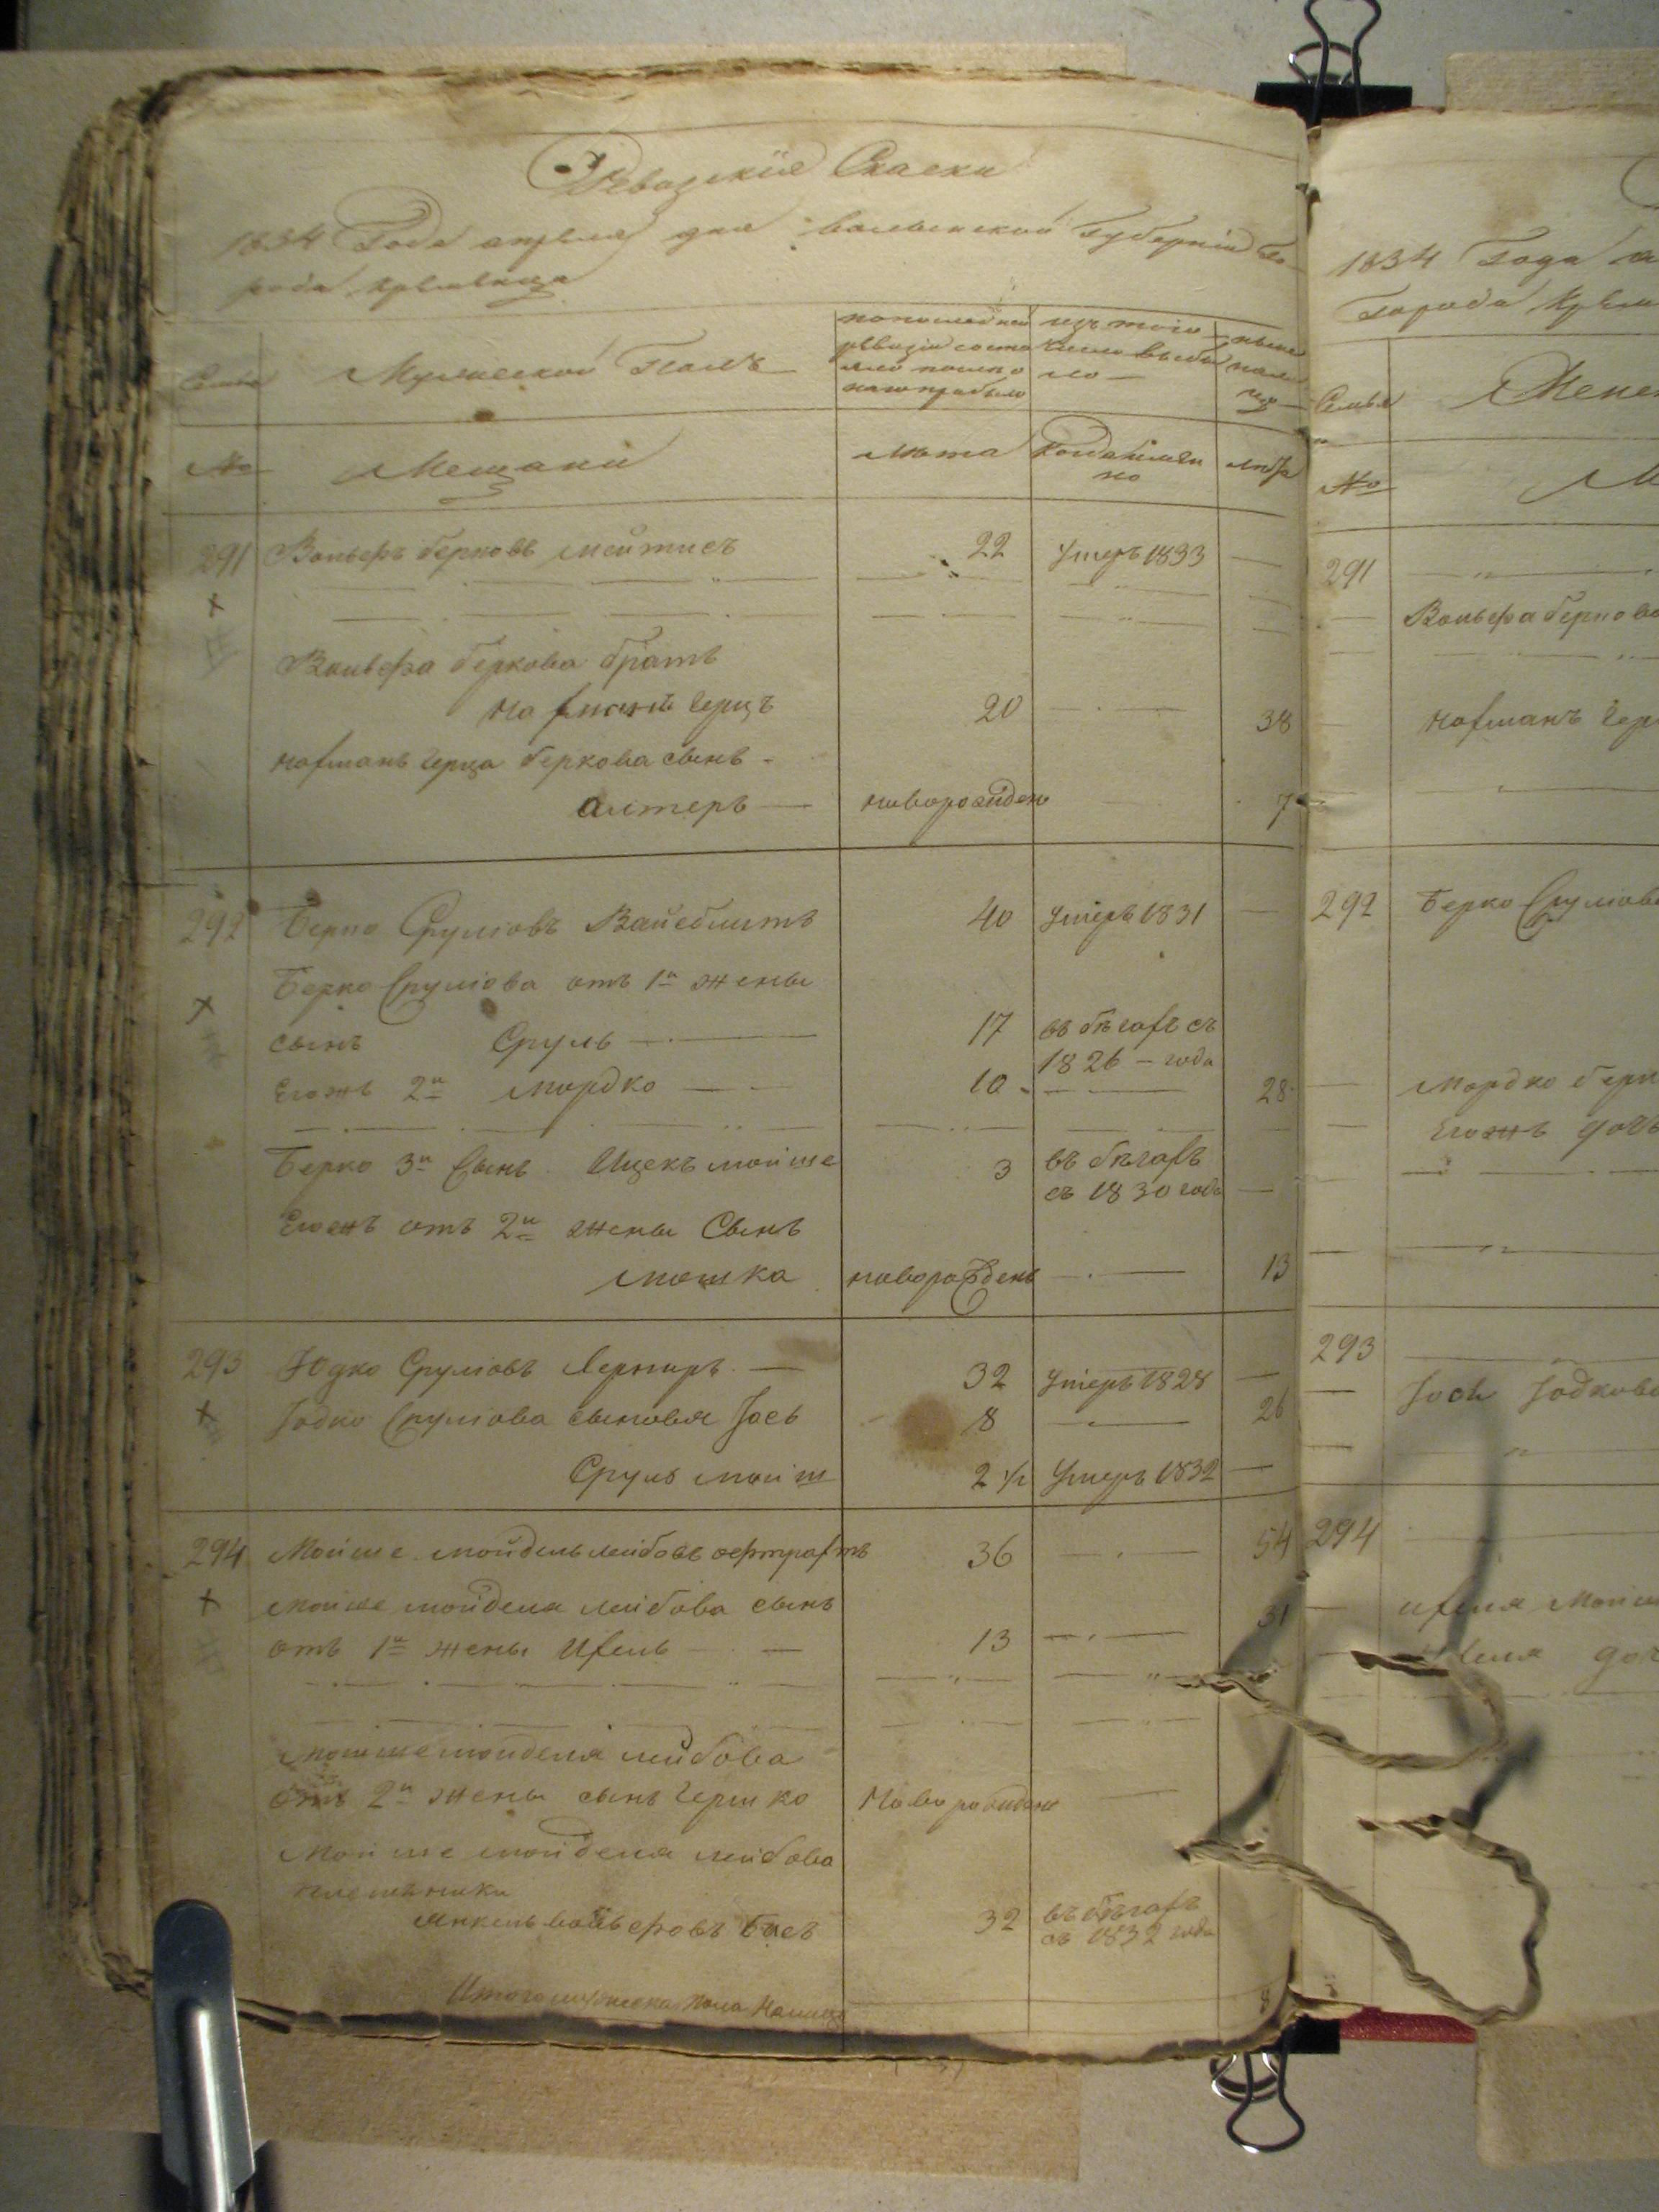 Ревизскіе Скаски
1834 Года апреля дня волынской Губерніи Го-
рода кременца
Семья
Мужеской Полъ
по последней ревизіи состояло и после того прибыло
изъ того числа выбыло
ныне налицо
№
Мещани
Лета
Когда имянно
лета
291 Вольфъ берковъ мейтисъ 22 Умеръ 1833
Вольфа беркова братъ
герцъ 20 38
нахманъ герца беркова сынъ
алтеръ новорожденъ 7
292 Берко Сруліовъ Вайсблитъ 40 умеръ 1831
Берко Сруліова отъ 1й жены
сынъ Сруль 17 въ бѣгахъ съ
1826 года
Егожъ 2й мордко 10 28
Берко 3й Сынъ Ицекъ мойше 3 въ бѣгахъ
съ 1830 года
Егожъ отъ 2й жены Сынъ
мошка новорожденъ 13
293 Юдко Сруліовъ Лерниръ 32 умеръ 1828
Іодко Сруліова сыновья Іось 8 26
Сруль мойш 2 1/2 Умеръ 1832
294 Мойше мойдель лейбовъ 36 54
мойше мойделя лейбова сынъ
отъ 1й жены Ихель 13 31
мойше мойделя лейбова
отъ 2й жены сынъ гершко Новорожденъ
Мойше мойделя лейбова
племѣнники
Янкель вольфовъ 32 въ бѣгахъ
съ 1832 года
Итого мужеска пола Налицо 8
1834 Года а
Города Креме
Семья
Женс
№
М
291
Вольфа берково
нахманъ гер
292 Берко Сруліова
Мордко берк
Егожъ дочь
293
Іось Іодкова
294
ихеля Мойш
ихеля доч